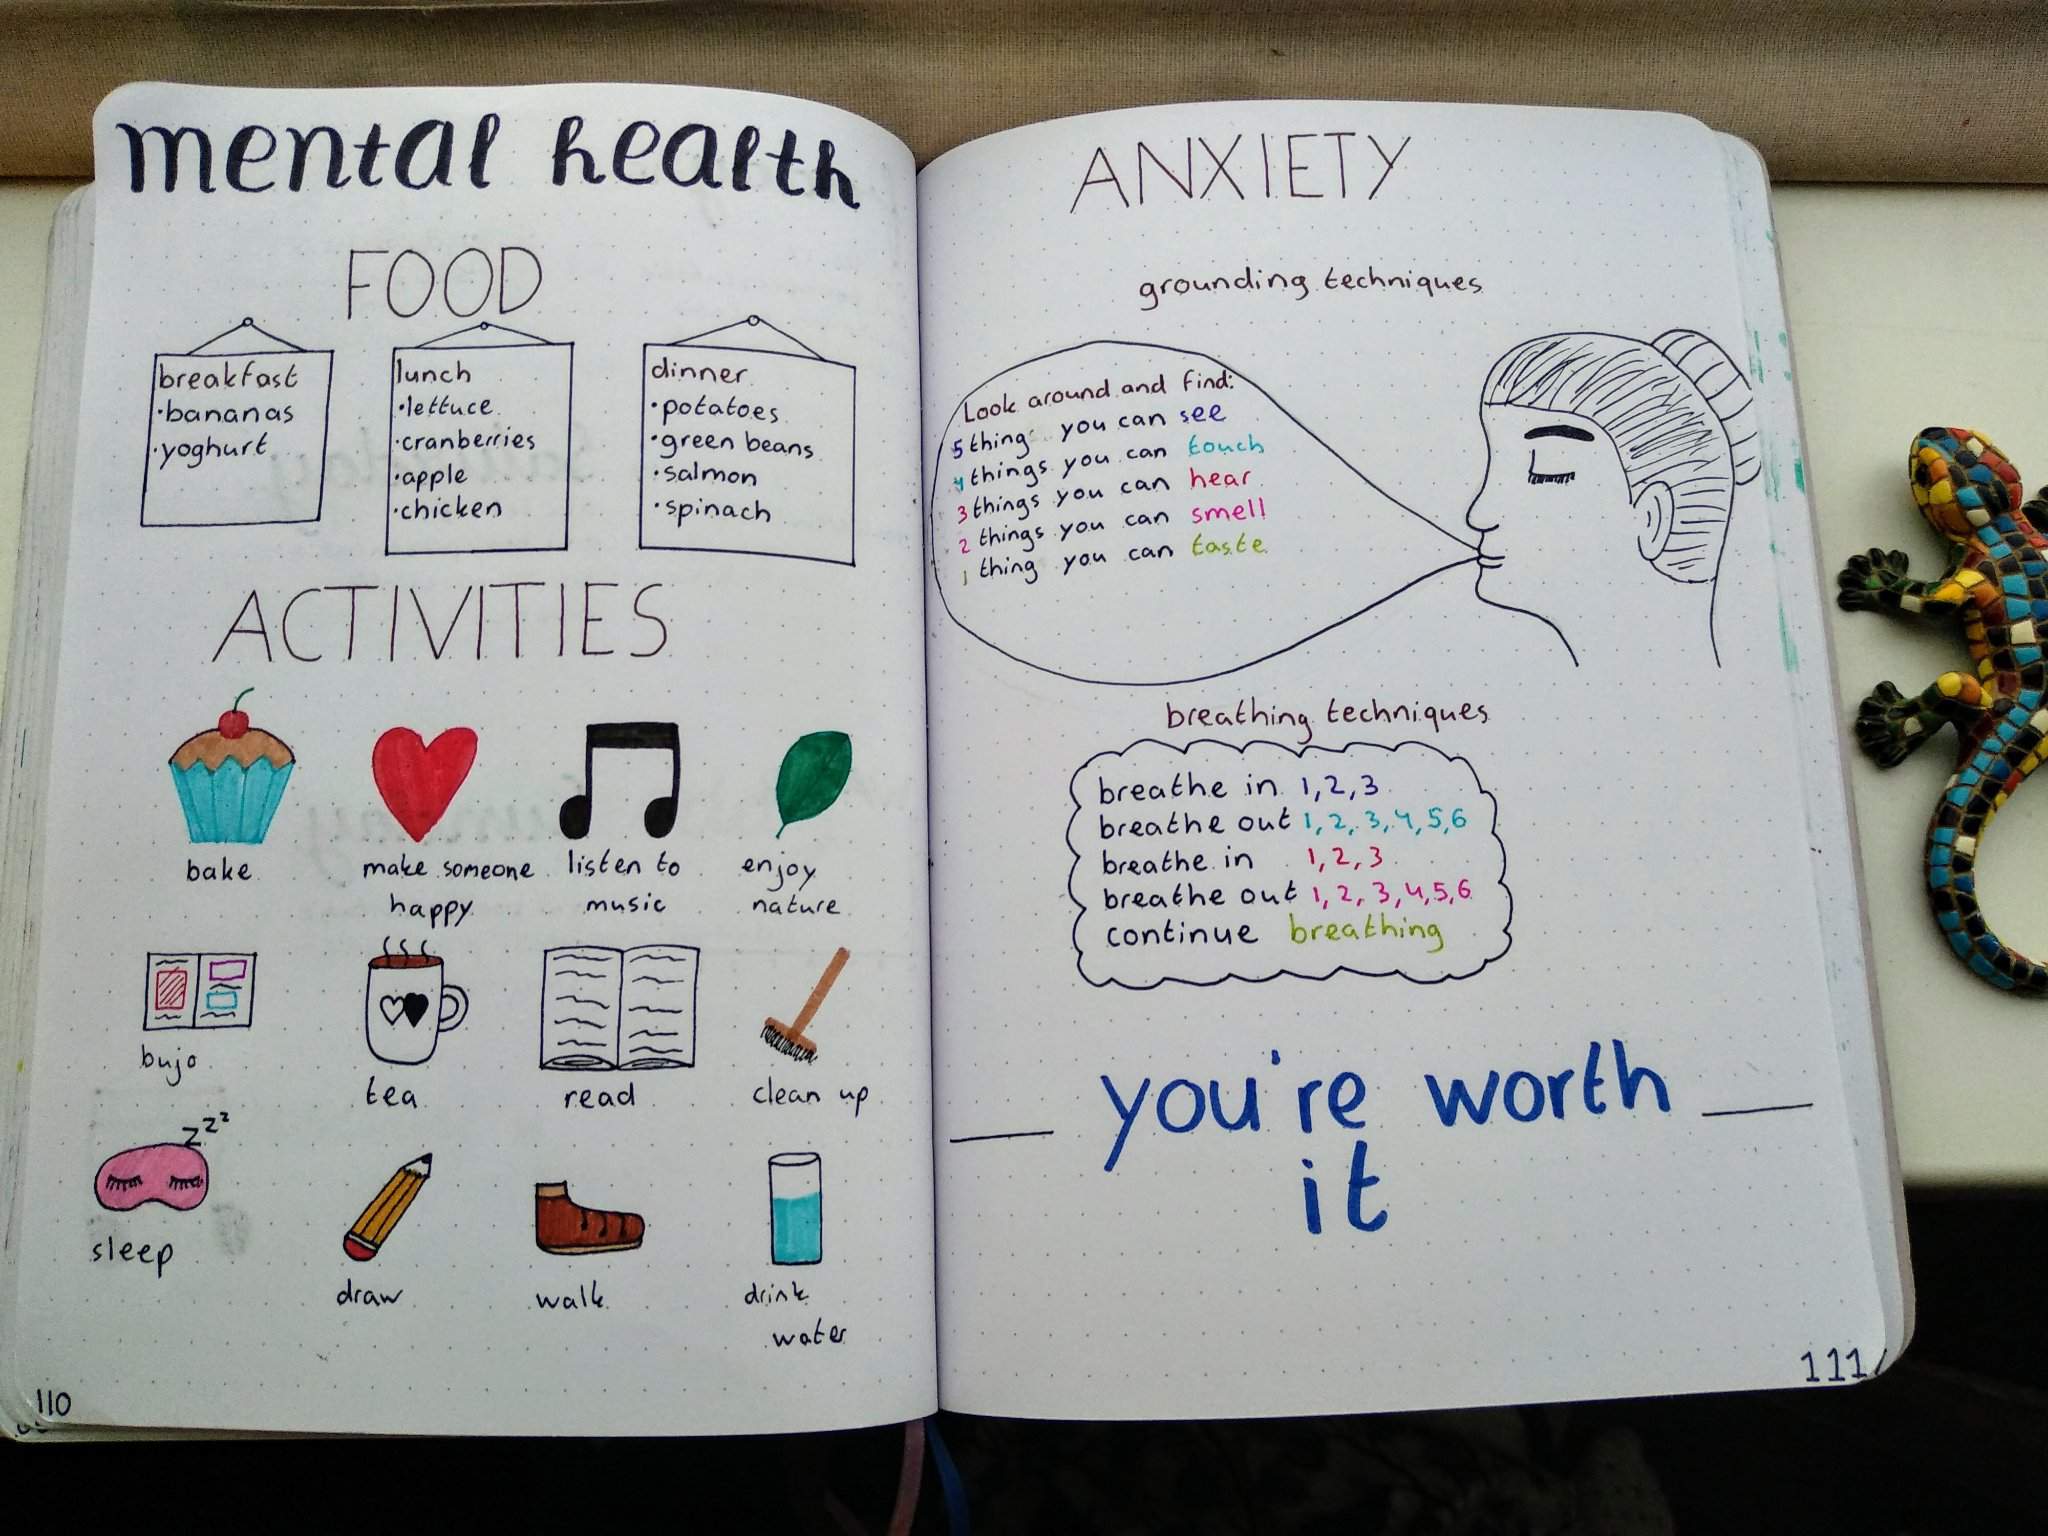 mental health
FOOD
breakfast
·bananas
·yoghurt
lunch
·lettuce
·cranberries
·apple
·chicken
dinner
·potatoes
·green beans
·salmon
·spinach
ACTIVITIES
bake
make someone
happy
listen to
music
enjoy
nature
bujo
tea
read
clean up
zzz
sleep
draw
walk
drink
water
110
ANXIETY
grounding techniques
Look around and find:
5 thing you can see
4 things you can touch
3 things you can hear
2 things you can smell
1 thing you can taste
breathing techniques
breathe in 1,2,3
breathe out 1,2,3,4,5,6
breathe in 1,2,3
breathe out 1,2,3,4,5,6
continue breathing
you're worth
it
111